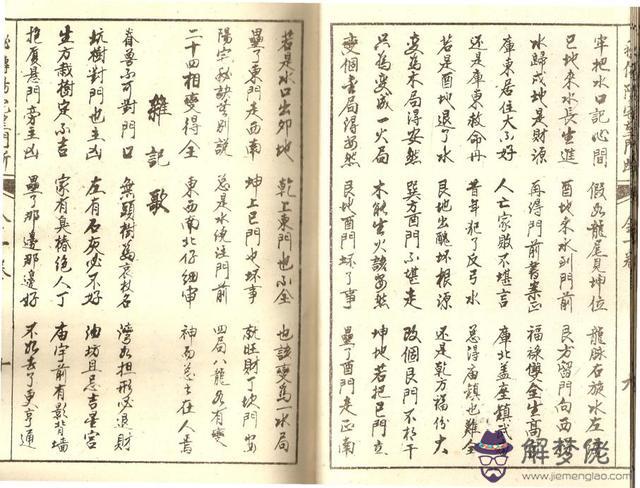 牢把水口記心間 假如龍尾見坤位 龍脉石旋水左
巳地來水長生進 酉地來水到門前 艮方留門向西
水歸戌地是財源 再得門前書案正 福祿雙全生高
庫東居住大不好 人亡家敗不堪言 庫北蓋座鎮
還是庫東救命丹 昔年犯了反弓水 急得廟鎮也難全
若是酉地退了水 艮地出醜坏根源 還是乾方福份大
變為木局得安然 巽方酉門不堪走 改個艮門不相干
只為變成一火局 木能生火該安然 坤地若把巳門立
變個書局得安然 艮地 坏了事 壘了酉門走正南
若是水口出卯地 乾上東門也不全 也該變為一水局
壘了東門走西南 坤上巳門也坏事 就旺財丁坎門安
陽宅秘訣無別說 總是水繞注門前 四局八龍如有變
二十四相變得全 東西南北仔細審 神而忘之在人焉
雜記歌
脊獸不可對門口 無頭樹為哀杖名 灣如担形必退財
坑樹對門也主凶 左右有石灰必不好 油坊且忌吉星宮
生方栽樹定不吉 家有臭椿絕人丁 廟宇前有影背墻
抱廈懸門旁主凶 壘了那邊那邊好 不如去了更亨通
解梦佬
www.jiemenglao.com